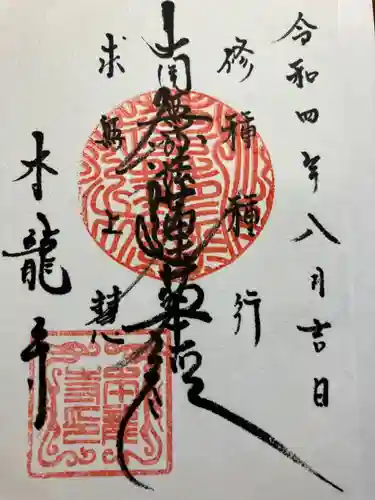 令和四年八月吉日
修種種行
南無妙法蓮華経
求無上慧
本龍寺